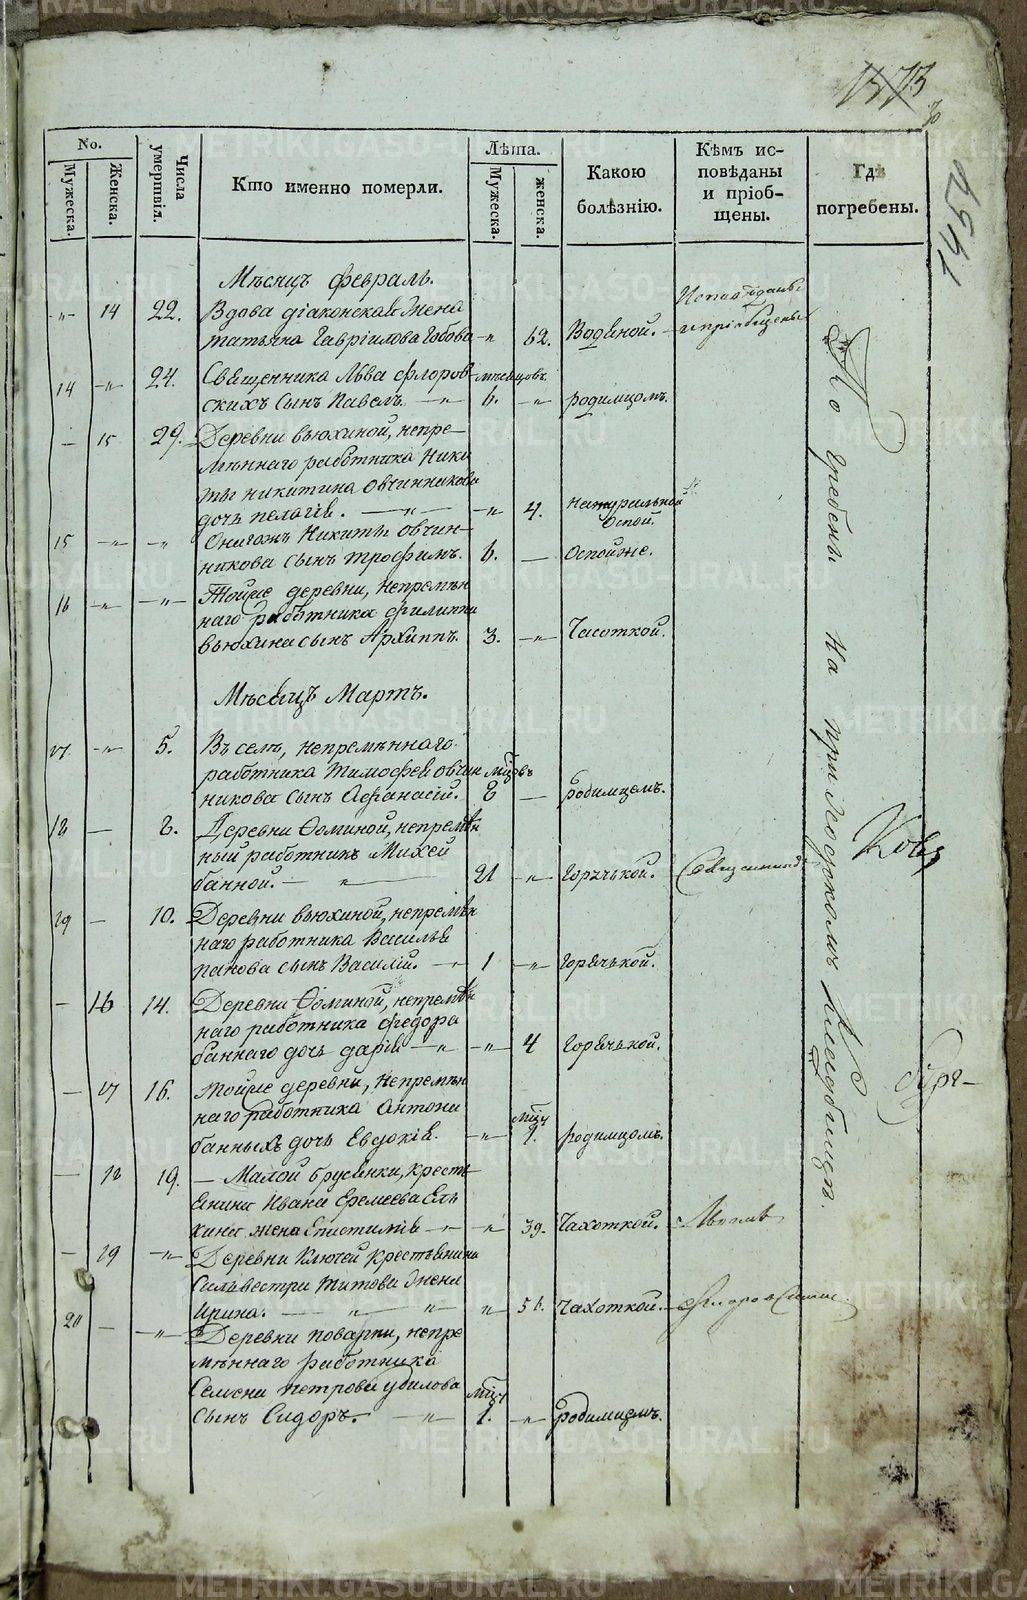 1573
1494
No.
Мужеска.
Женска.
Числа умершвіл.
Кто именно померли.
Лѣта.
Мужеска.
женска.
Какою болѣзнію.
Кѣмъ ис-
повѣданы
и пріоб-
щены.
Гдѣ
погребены.
Мѣсяцъ февраль.
-"- 14 22. Вдова діаконская жена
татьяна Гавріилова -"- 62. Водяной. Исповѣдана и пріобщена
14 -"- 24. Священника Льва флоров- мѣсяцовъ
скихъ Сынъ Павелъ. -"- 6. -"- родимцомъ.
- 15 29. Деревни вьюхиной, непре-
мѣннаго работника Ники
ты никитина овчинникова
дочь пелагія. -"- -"- 4. натуральной
Оспой.
15 -"- -"- Онагожъ Никиты овчин-
никова сынъ трофимъ. 6. - Оспойже.
16 -"- -"- Тойже деревни, непремѣн
наго работника филиппа
вьюхина сынъ Архиппъ. 3. -"- Чахоткой.
Мѣсяцъ Мартъ.
17 -"- 5. Въ селѣ, непремѣннаго
работника тимофея овчин мцовъ
никова сынъ Афанасій. 8 - родимцемъ.
18 - 8. Деревни Ѳоминой, непремѣн
ный работникъ Михей
банной. -"- 21 -"- Горячькой. Священник
19 - 10. Деревни вьюхиной, непремѣн
наго работника Василья
панова сынъ Василій. 1 -"- Горячькой.
- 16 14. Деревни Ѳоминой, непремѣн
наго работника федора
баннаго дочь дарія -"- -"- 4 Горячькой.
- 17 16. тойже деревни, непремѣн
наго работника Антона мцъ
банныхъ дочь Евдокія. -"- 1. родимцомъ.
- 18 19. - Малой брусянки, кресть
янина Ивана Еремеева Ел
кина жена Епистимія -"- -"- 39. Чахоткой.
- 19 -"- Деревни Ключей крестьянина
Сильвестра титова жена
Ирина. -"- -"- -"- 56. Чахоткой. флоровским
20 - -"- Деревни поварни, непре
мѣннаго работника
Семена петрова убилова мцъ
сынъ Сидоръ. -"- 1. -"- родимцемъ.
Погребены На приходскомъ кладбищѣ.
METRIKI.GASO-URAL.RU